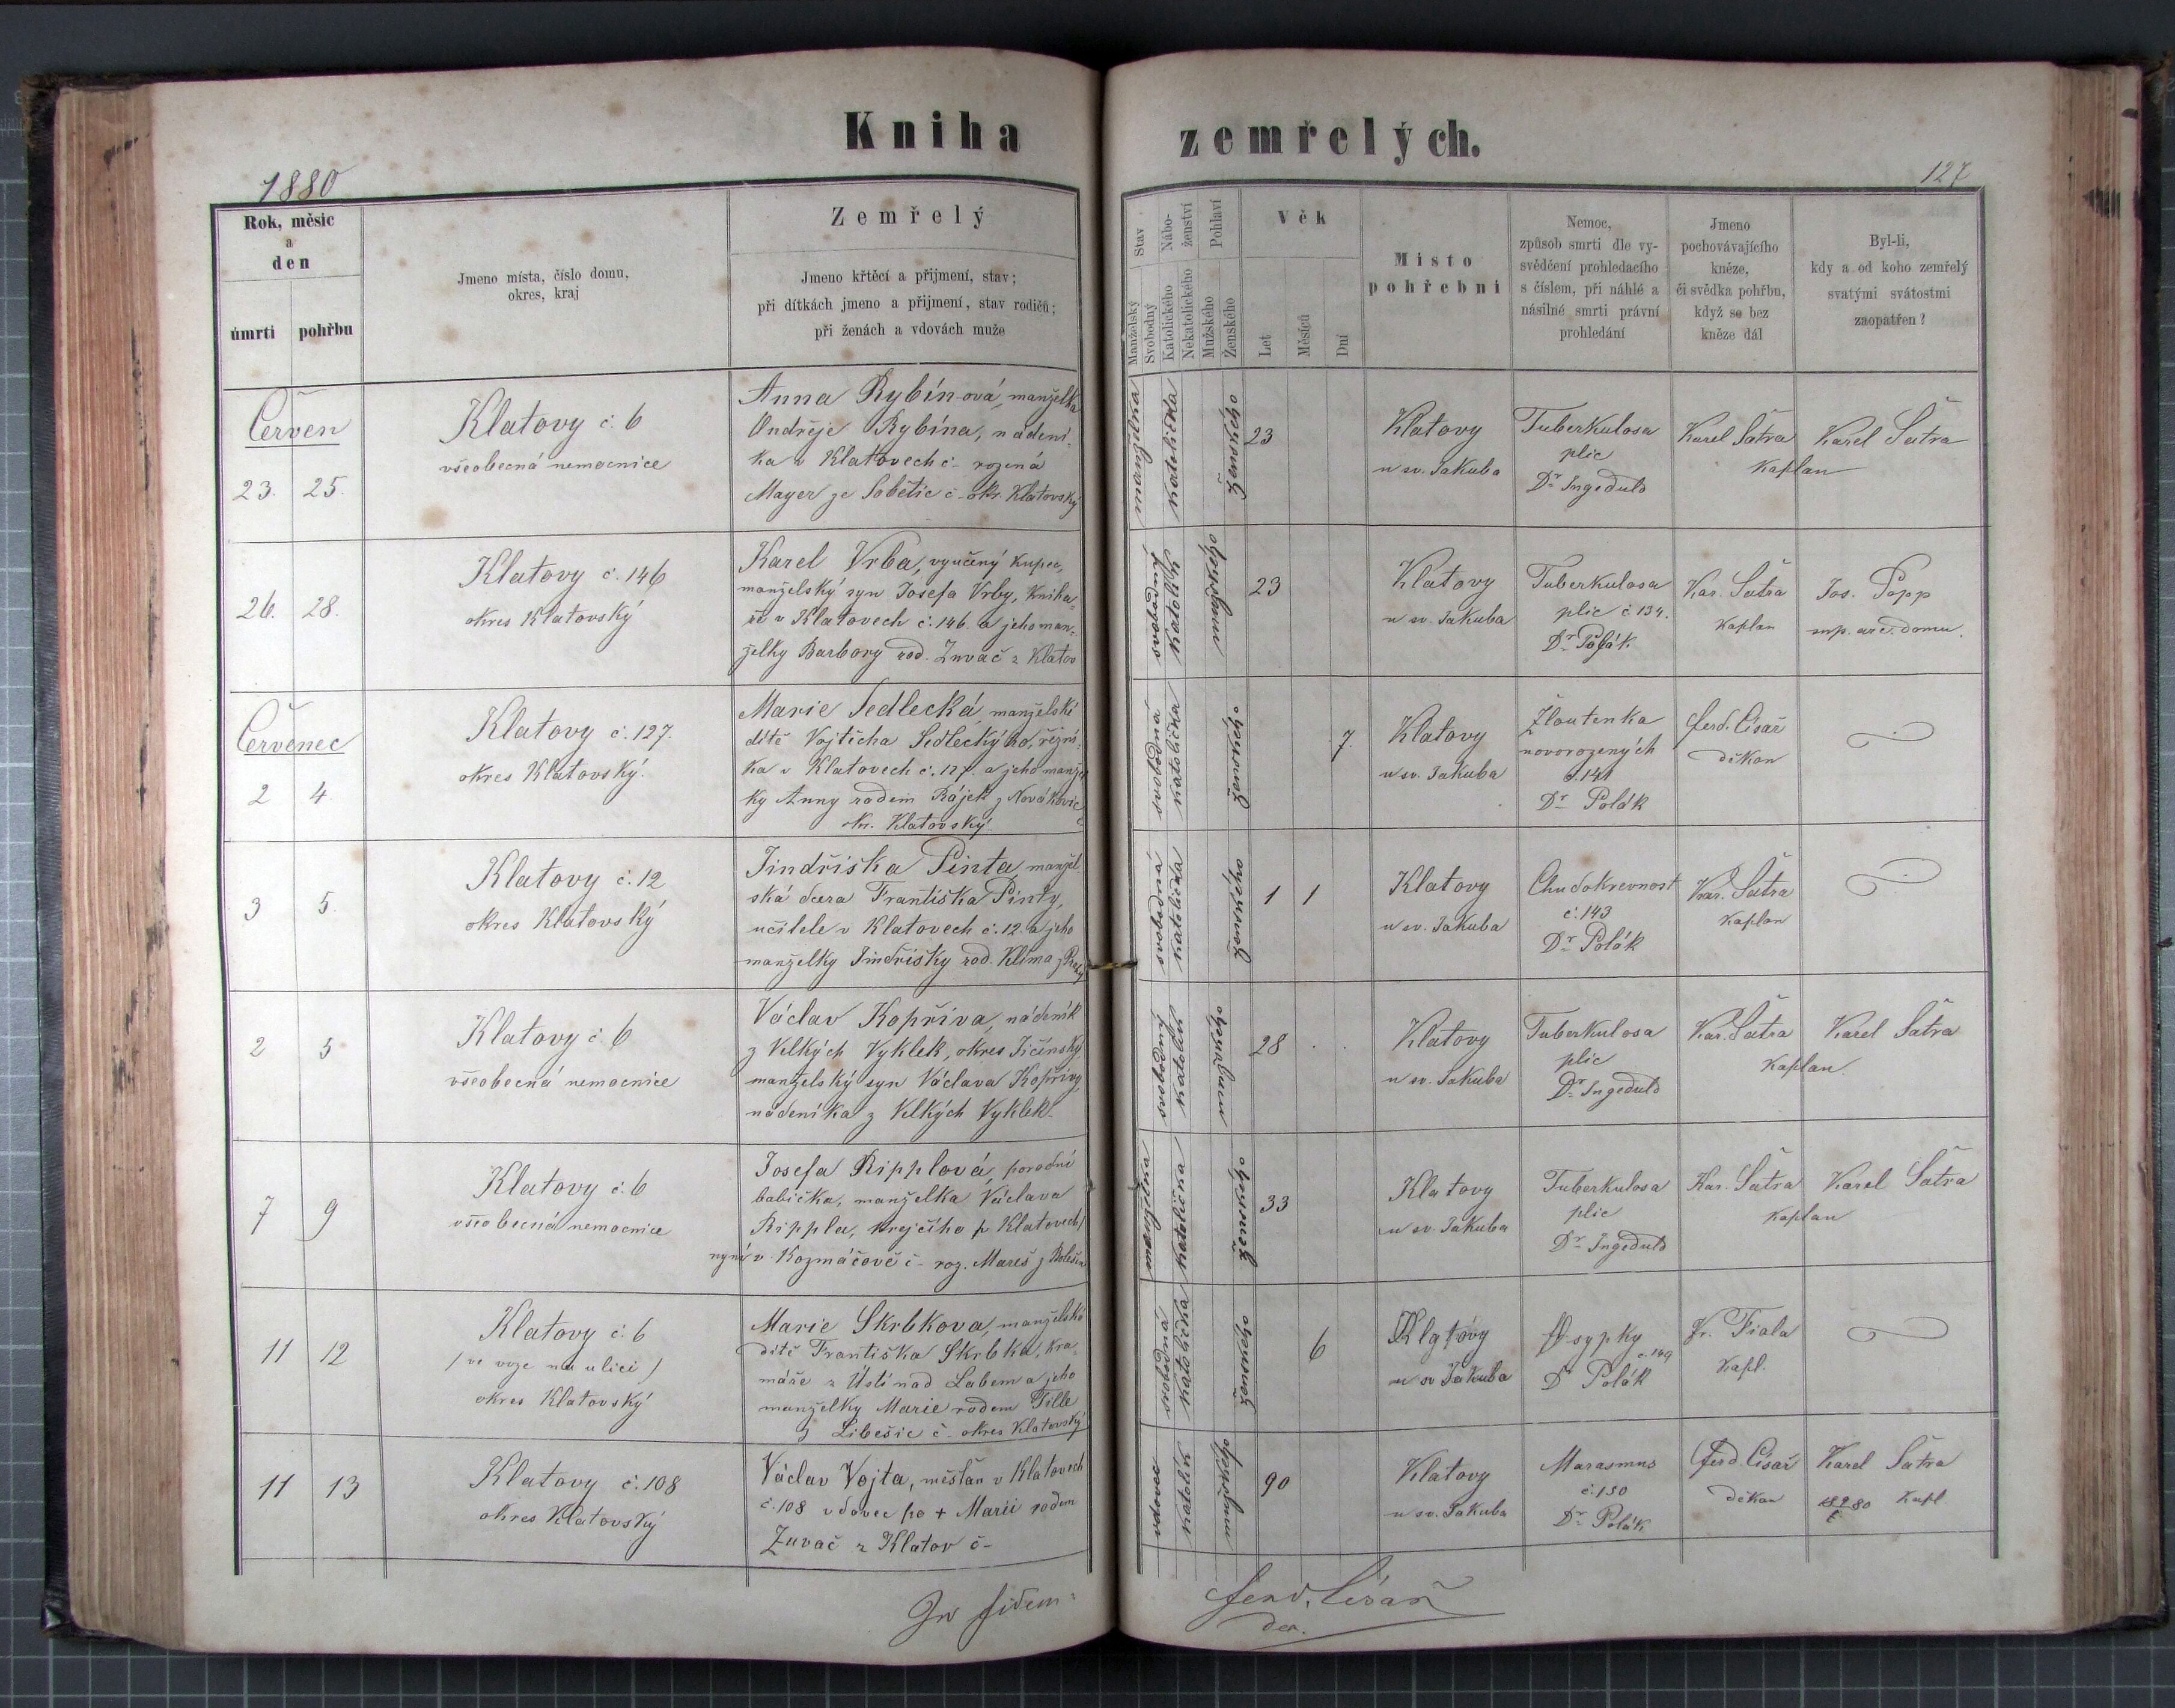 Kniha zemřelých.
1880
127
Rok, měsíc
a
den
úmrtí pohřbu
Jmeno místa, číslo domu,
okres, kraj
Zemřelý
Jmeno křtěcí a přijmení, stav;
při dítkách jmeno a přijmení, stav rodičů;
při ženách a vdovách muže
Stav
Manželský
Svobodný
Nábo-
ženství
Katolického
Nekatolického
Pohlaví
Mužského
Ženského
Věk
Let
Měsíců
Dní
Místo
pohřební
Nemoc,
způsob smrti dle vy-
svědčení prohledacího
s číslem, při náhlé a
násilné smrti právní
prohledání
Jmeno
pochovávajícího
kněze,
či svědka pohřbu,
když se bez
kněze dál
Byl-li,
kdy a od koho zemřelý
svatými svátostmi
zaopatřen?
Červen
23. 25.
Klatovy č. 6
všeobecná nemocnice
Anna Rybín-ová, manželka
Ondřeje Rybína, nádení-
ka v Klatovech č- rozená
Mayer ze Sobětic č- okr. Klatovský
manželská
katolička
ženského
23
Klatovy
u sv. Jakuba
Tuberkulosa
plic
Dr Ingeduld
Karel Šatra
Karel Šatra
kaplan
26. 28.
Klatovy č. 146
okres Klatovský
Karel Vrba, vyučený kupec,
manželský syn Josefa Vrby, kniha-
ře v Klatovech č. 146. a jeho man-
želky Barbory rod. Zuvač z Klatov
svobodný
katolík
mužského
23
Klatovy
u sv. Jakuba
Tuberkulosa
plic č. 134.
Dr Polák
Kar. Šatra
kaplan
Jos. Popp
sup. arc. domu.
Červenec
2 4
Klatovy č. 127.
okres Klatovský.
Marie Sedlecká, manželské
dítě Vojtěcha Sedleckýho, řezní-
ka v Klatovech č. 127. a jeho manžel
ky Anny rodem Rájek z Novákovic
okr. Klatovský
svobodná
katolička
ženského
7.
Klatovy
u sv. Jakuba
Žloutenka
novorozených
č. 141
Dr Polák
Ferd. Císař
děkan
3 5.
Klatovy č. 12
okres Klatovský
Jindřiška Pinta, manžel
ská dcera Františka Pinty,
učitele v Klatovech č. 12. a jeho
manželky Jindřišky rod. Klima z Prahy
svobodná
katolička
ženského
1 1
Klatovy
u sv. Jakuba
Chudokrevnost
č. 143
Dr Polák
Kar. Šatra
kaplan
2 5
Klatovy č. 6
všeobecná nemocnice
Václav Kopřiva, nádeník
z Velkých Vyklek, okres Jičínský
manželský syn Václava Kopřivy,
nádeníka z Velkých Vyklek-
svobodný
katolík
mužského
28
Klatovy
u sv. Jakuba
Tuberkulosa
plic
Dr Ingeduld
Kar. Šatra
Karel Šatra
kaplan.
7 9
Klatovy č. 6
všeobecná nemocnice
Josefa Ripplová, porodní
babička, manželka Václava
Rippla, krejčího v Klatovech,
nyní v Kozmáčově č- roz. Mareš z
manželská
katolička
ženského
33
Klatovy
u sv. Jakuba
Tuberkulosa
plic
Dr Ingeduld
Kar. Šatra
Karel Šatra
kaplan
11 12
Klatovy č. 6
/ ve voze na ulici /
okres Klatovský
Marie Skrbkova, manželské
dítě Františka Skrbka, kra-
máře z Ústí nad Labem a jeho
manželky Marie rodem Tille
z Liběšic č- okres Klatovský
svobodná
katolička
ženského
6
Klatovy
u sv Jakuba
Osypky
č. 149
Dr Polák
Fr. Fiala
kapl.
11 13
Klatovy č. 108
okres Klatovský
Václav Vojta, měšťan v Klatovech
č. 108 vdovec po + Marii rodem
Zuvač z Klatov č-
vdovec
katolík
mužského
90
Klatovy
u sv. Jakuba
Marasmus
č. 150
Dr Polák
Ferd. Císař
děkan
Karel Šatra
kapl
In fidem:
Ferd. Císař